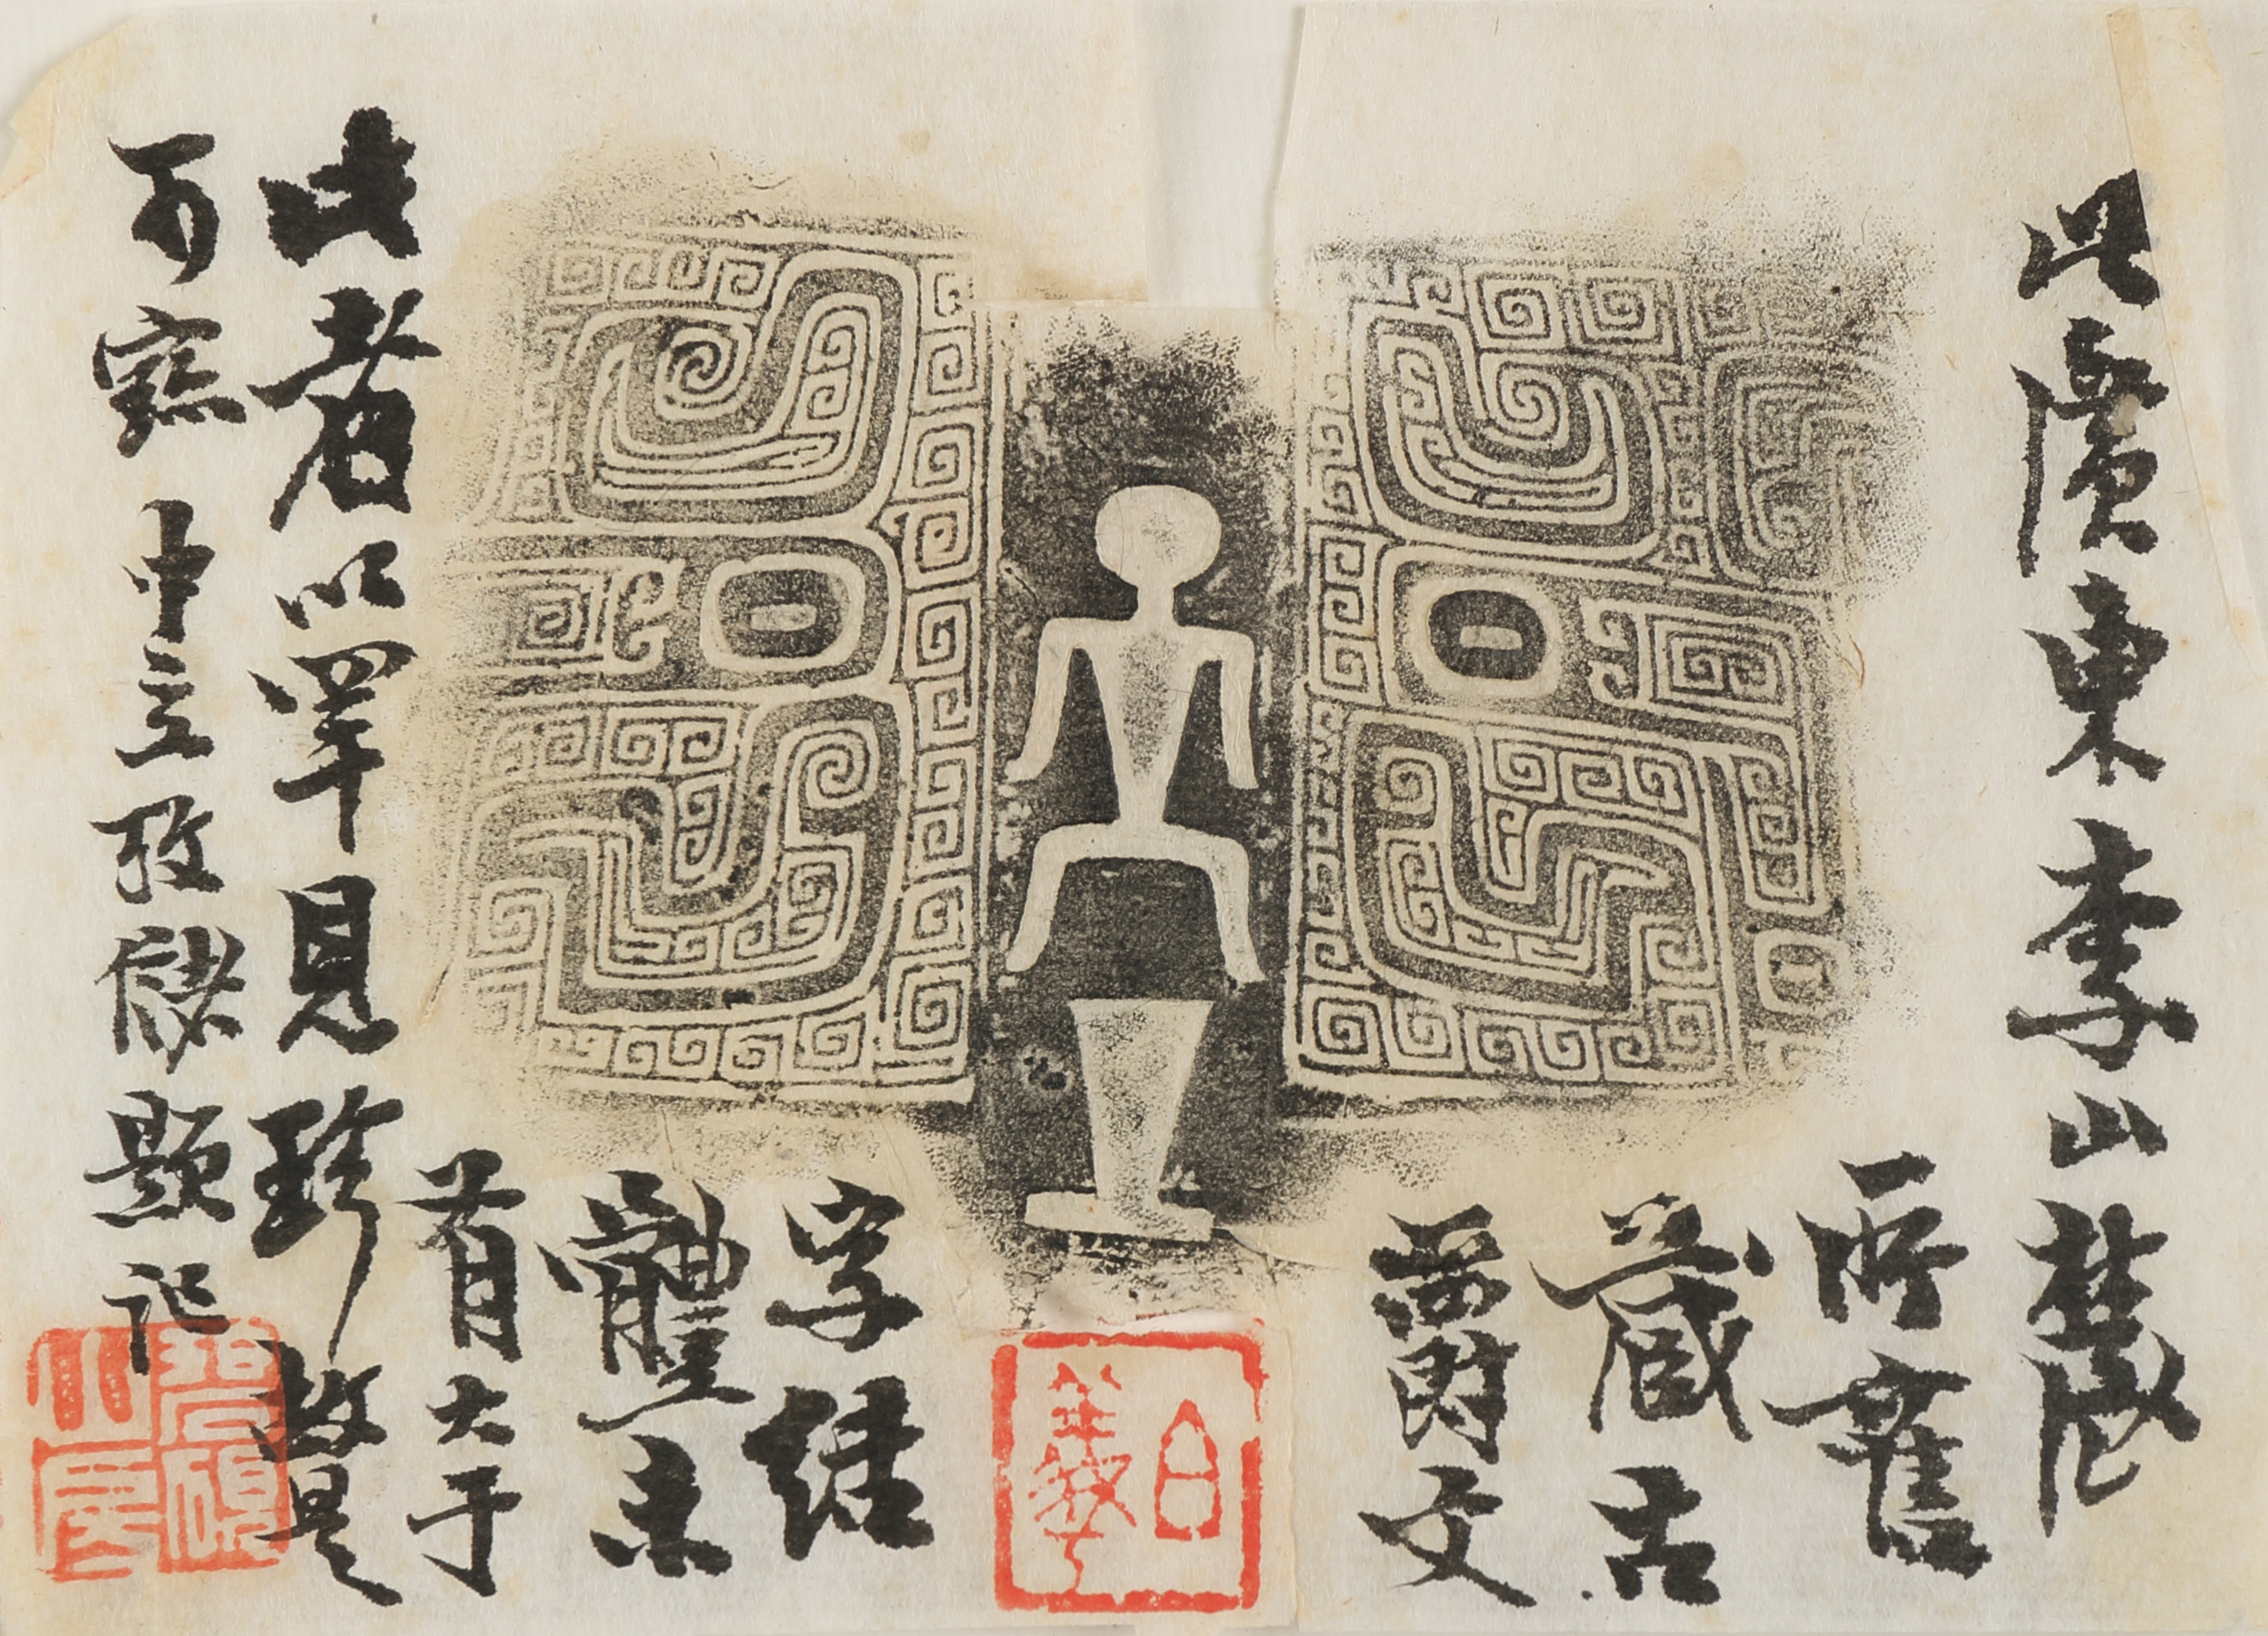 此廣東李山農
所舊
藏古
爵文
字結
體未
有大于
此者以罕見珍故是
可寶中立孜儲題記